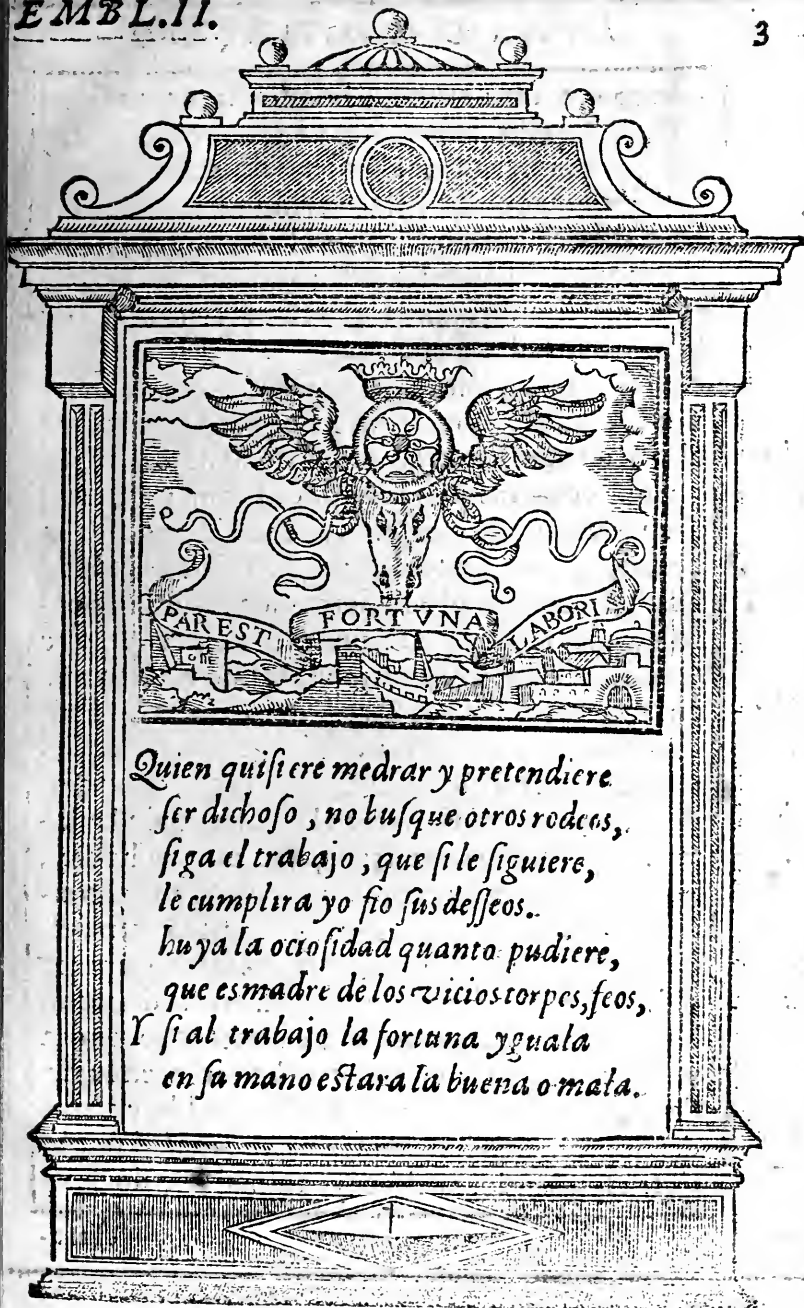 EMBL.II.
3
PAR EST FORTVNA LABORI
Quien quiſiere medrar y pretendiere
ſer dichoſo, no buſque otros rodeos,
ſiga el trabajo, que ſi le ſiguiere,
le cumplira yo fio ſus deſſeos.
huya la ocioſidad quanto pudiere,
que es madre de los vicios torpes, feos,
Y ſi al trabajo la fortuna yguala
en ſu mano eſtara la buena o mala.